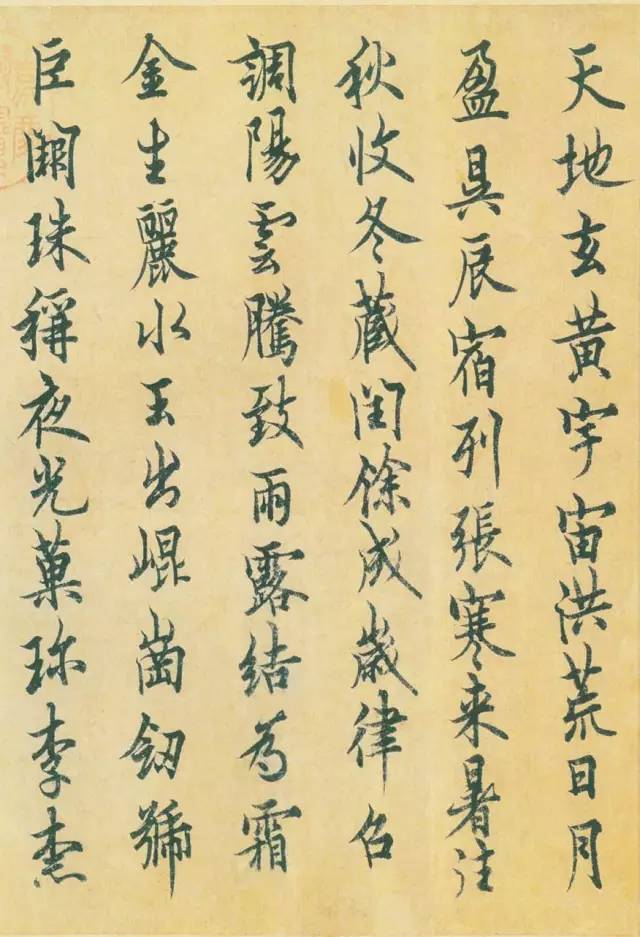 天地玄黃宇宙洪荒日月
盈昃辰宿列張寒来暑往
秋收冬蔵閏餘成歲律召
調陽雲騰致雨露結為霜
金生麗水玉出崐崗劒號
巨闕珠稱夜光菓珎李柰